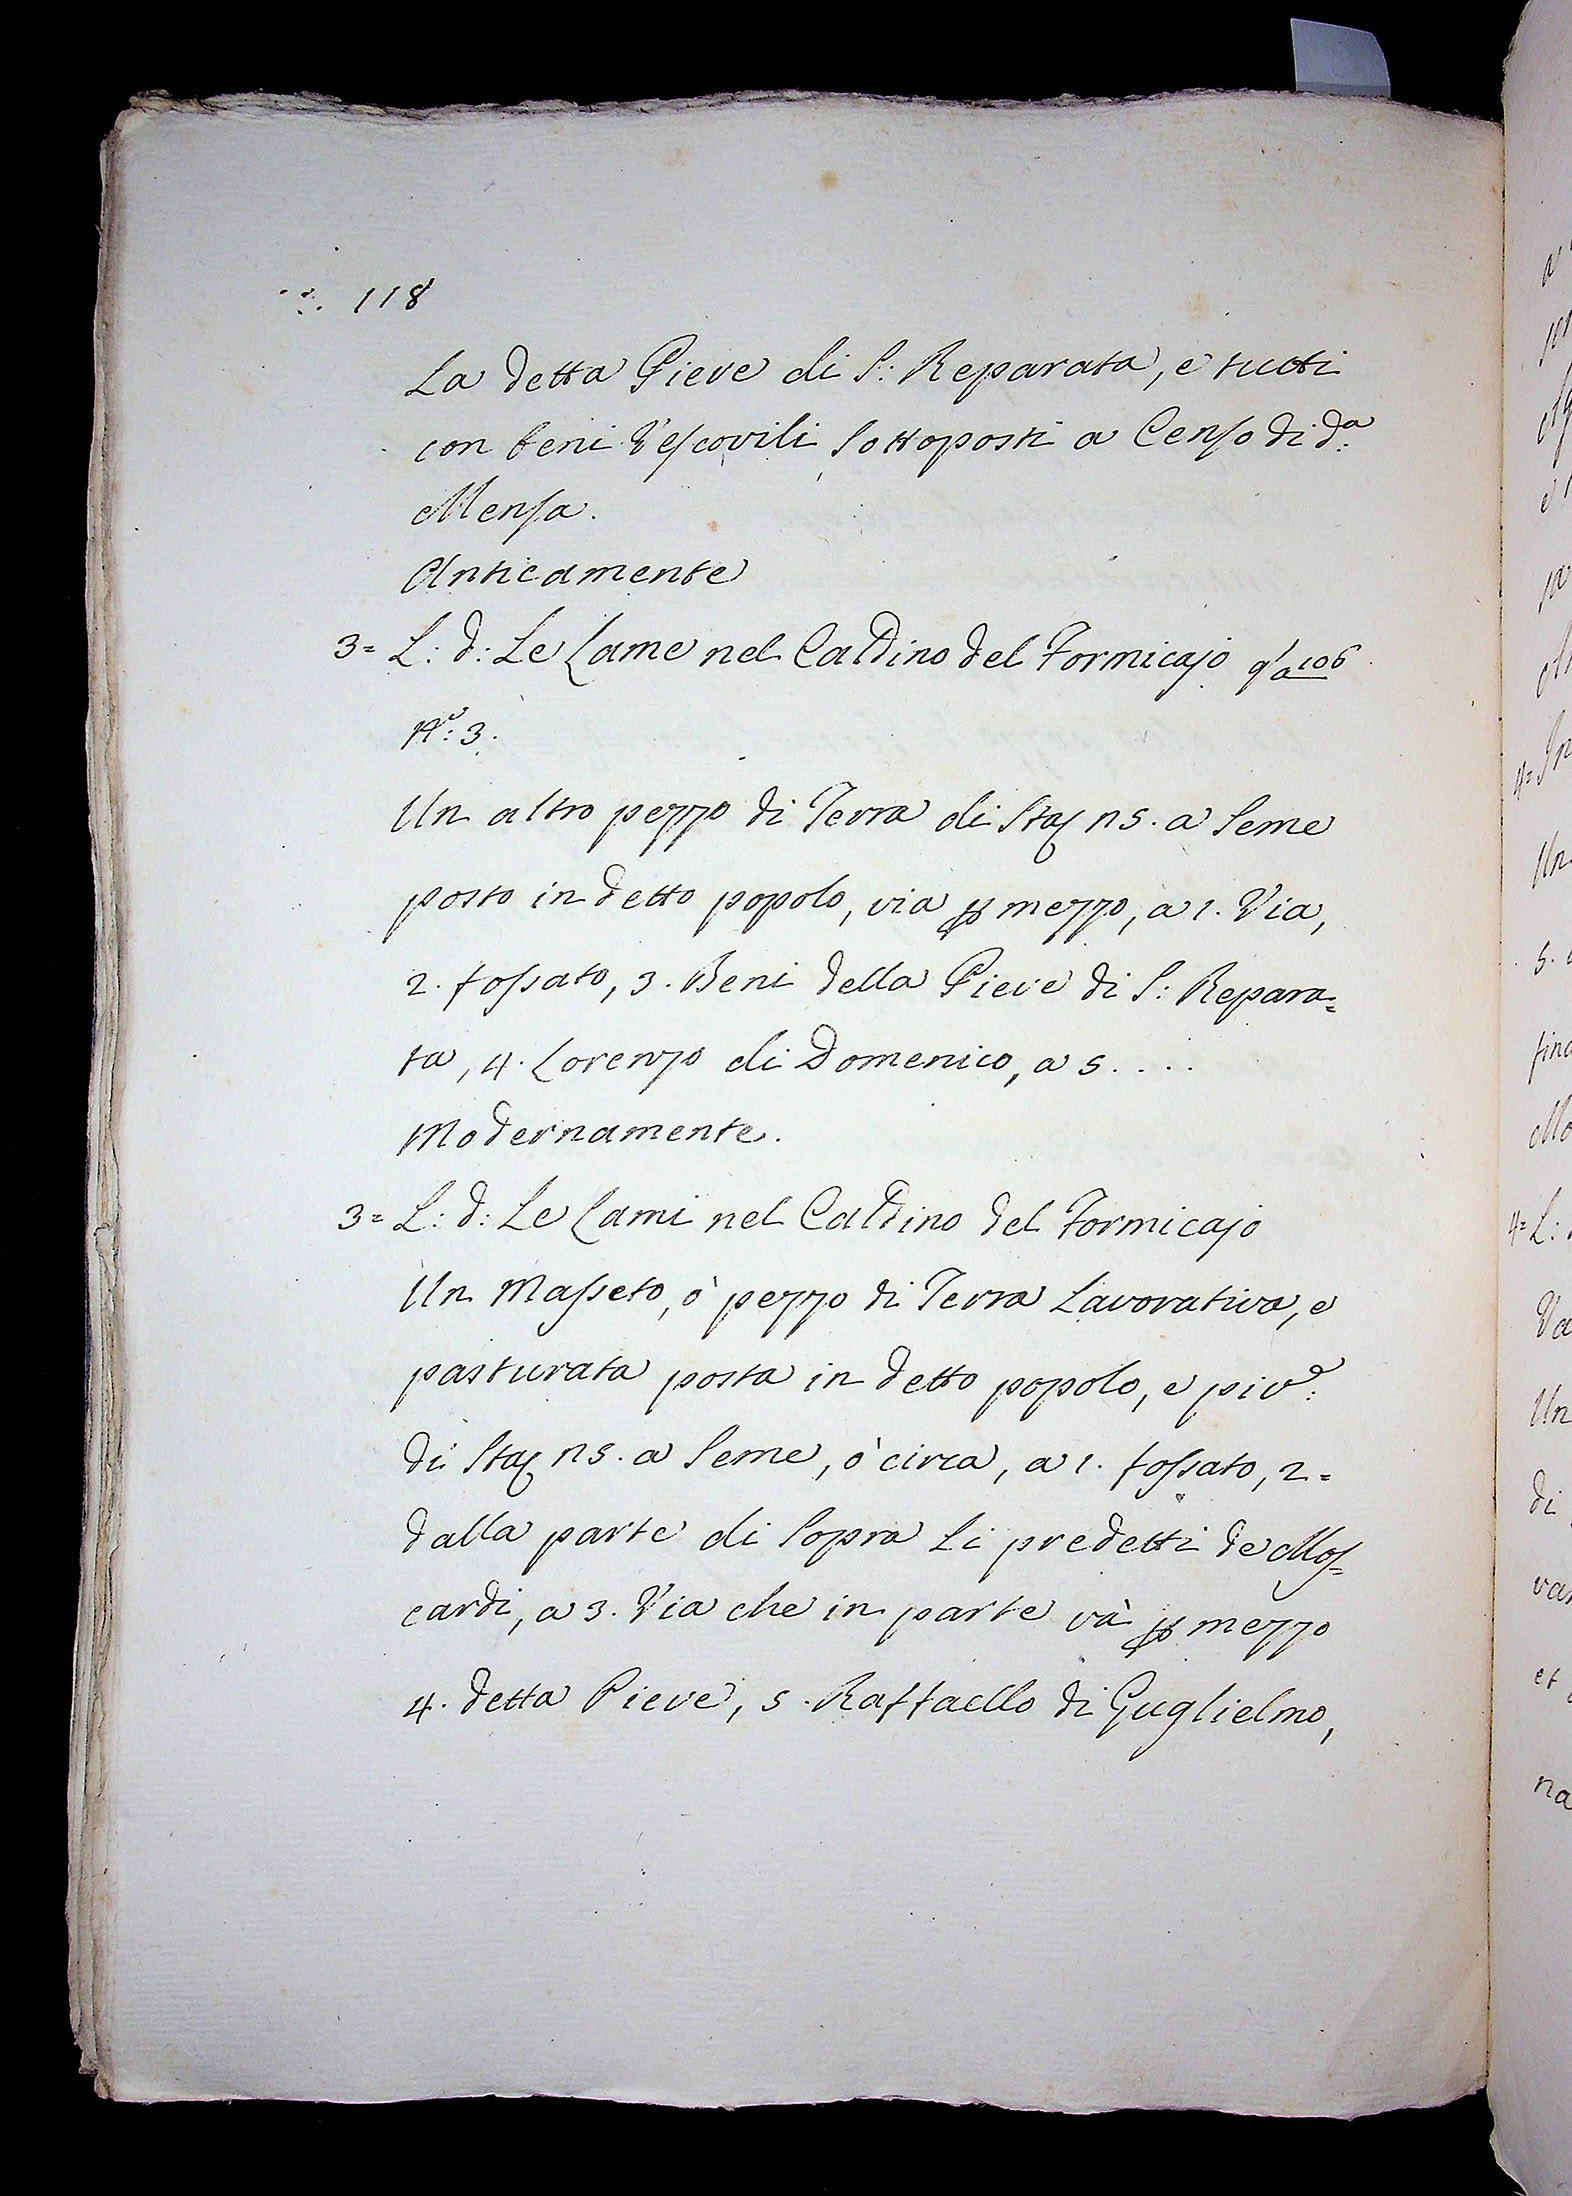 118
La detta Pieve di S: Reparata, e tutti
con beni Vescovili sottoposti a Censo di d.ª
Mensa.
Anticamente
3= L: d: Le Lame nel Caldino del Formicajo
Nº: 3.
Un altro pezzo di Terra di Staj n 5. a Seme
posto in detto popolo, via p mezzo, a 1. Via,
2. fossato, 3. Beni della Pieve di S: Repara=
ta, 4. Lorenzo di Domenico, a 5....
Modernamente.
3= L: d: Le Lami nel Caldino del Formicajo
Un Masseto, ò pezzo di Terra Lavorativa, e
pasturata posta in detto popolo, e piv.e
di Staj n 5. a Seme, ò circa, a 1. fossato, 2=
dalla parte di Sopra Li predetti de Mos=
cardi, a 3. Via che in parte và p mezzo
4. detta Pieve, 5. Raffaello di Guglielmo,